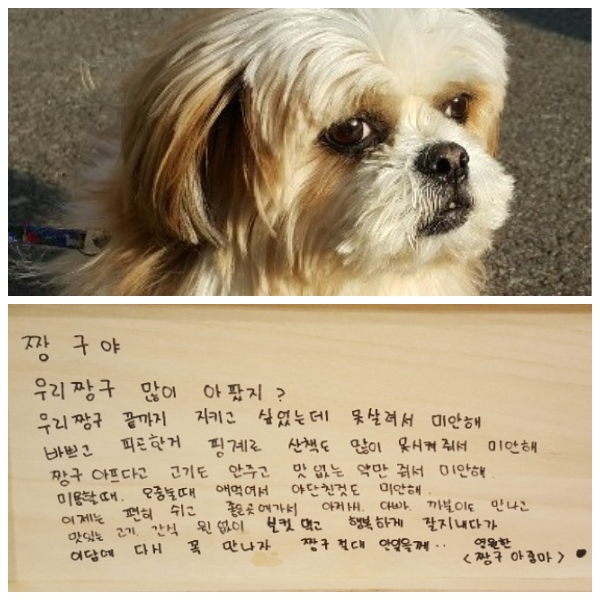 짱 구야
우리짱구 많이 아팠지?
우리짱구 끝까지 지키고 싶었는데 못살려서 미안해
바쁘고 피곤한거 핑계로 산책도 많이 못시켜줘서 미안해
짱구 아프다고 고기도 안주고 맛없는 약만 줘서 미안해.
미용할때. 오줌눌때 애먹여서 야단친것도 미안해.
이제는 편히 쉬고 좋은곳에가서 아빠. 까불이도 만나고
맛있는 고기. 간식 원없이 실컷 먹고 행복하게 잘지내다가
이담에 다시 꼭 만나자. 짱구 절대 안잊을께.. 영원한
<짱구 아줌마>